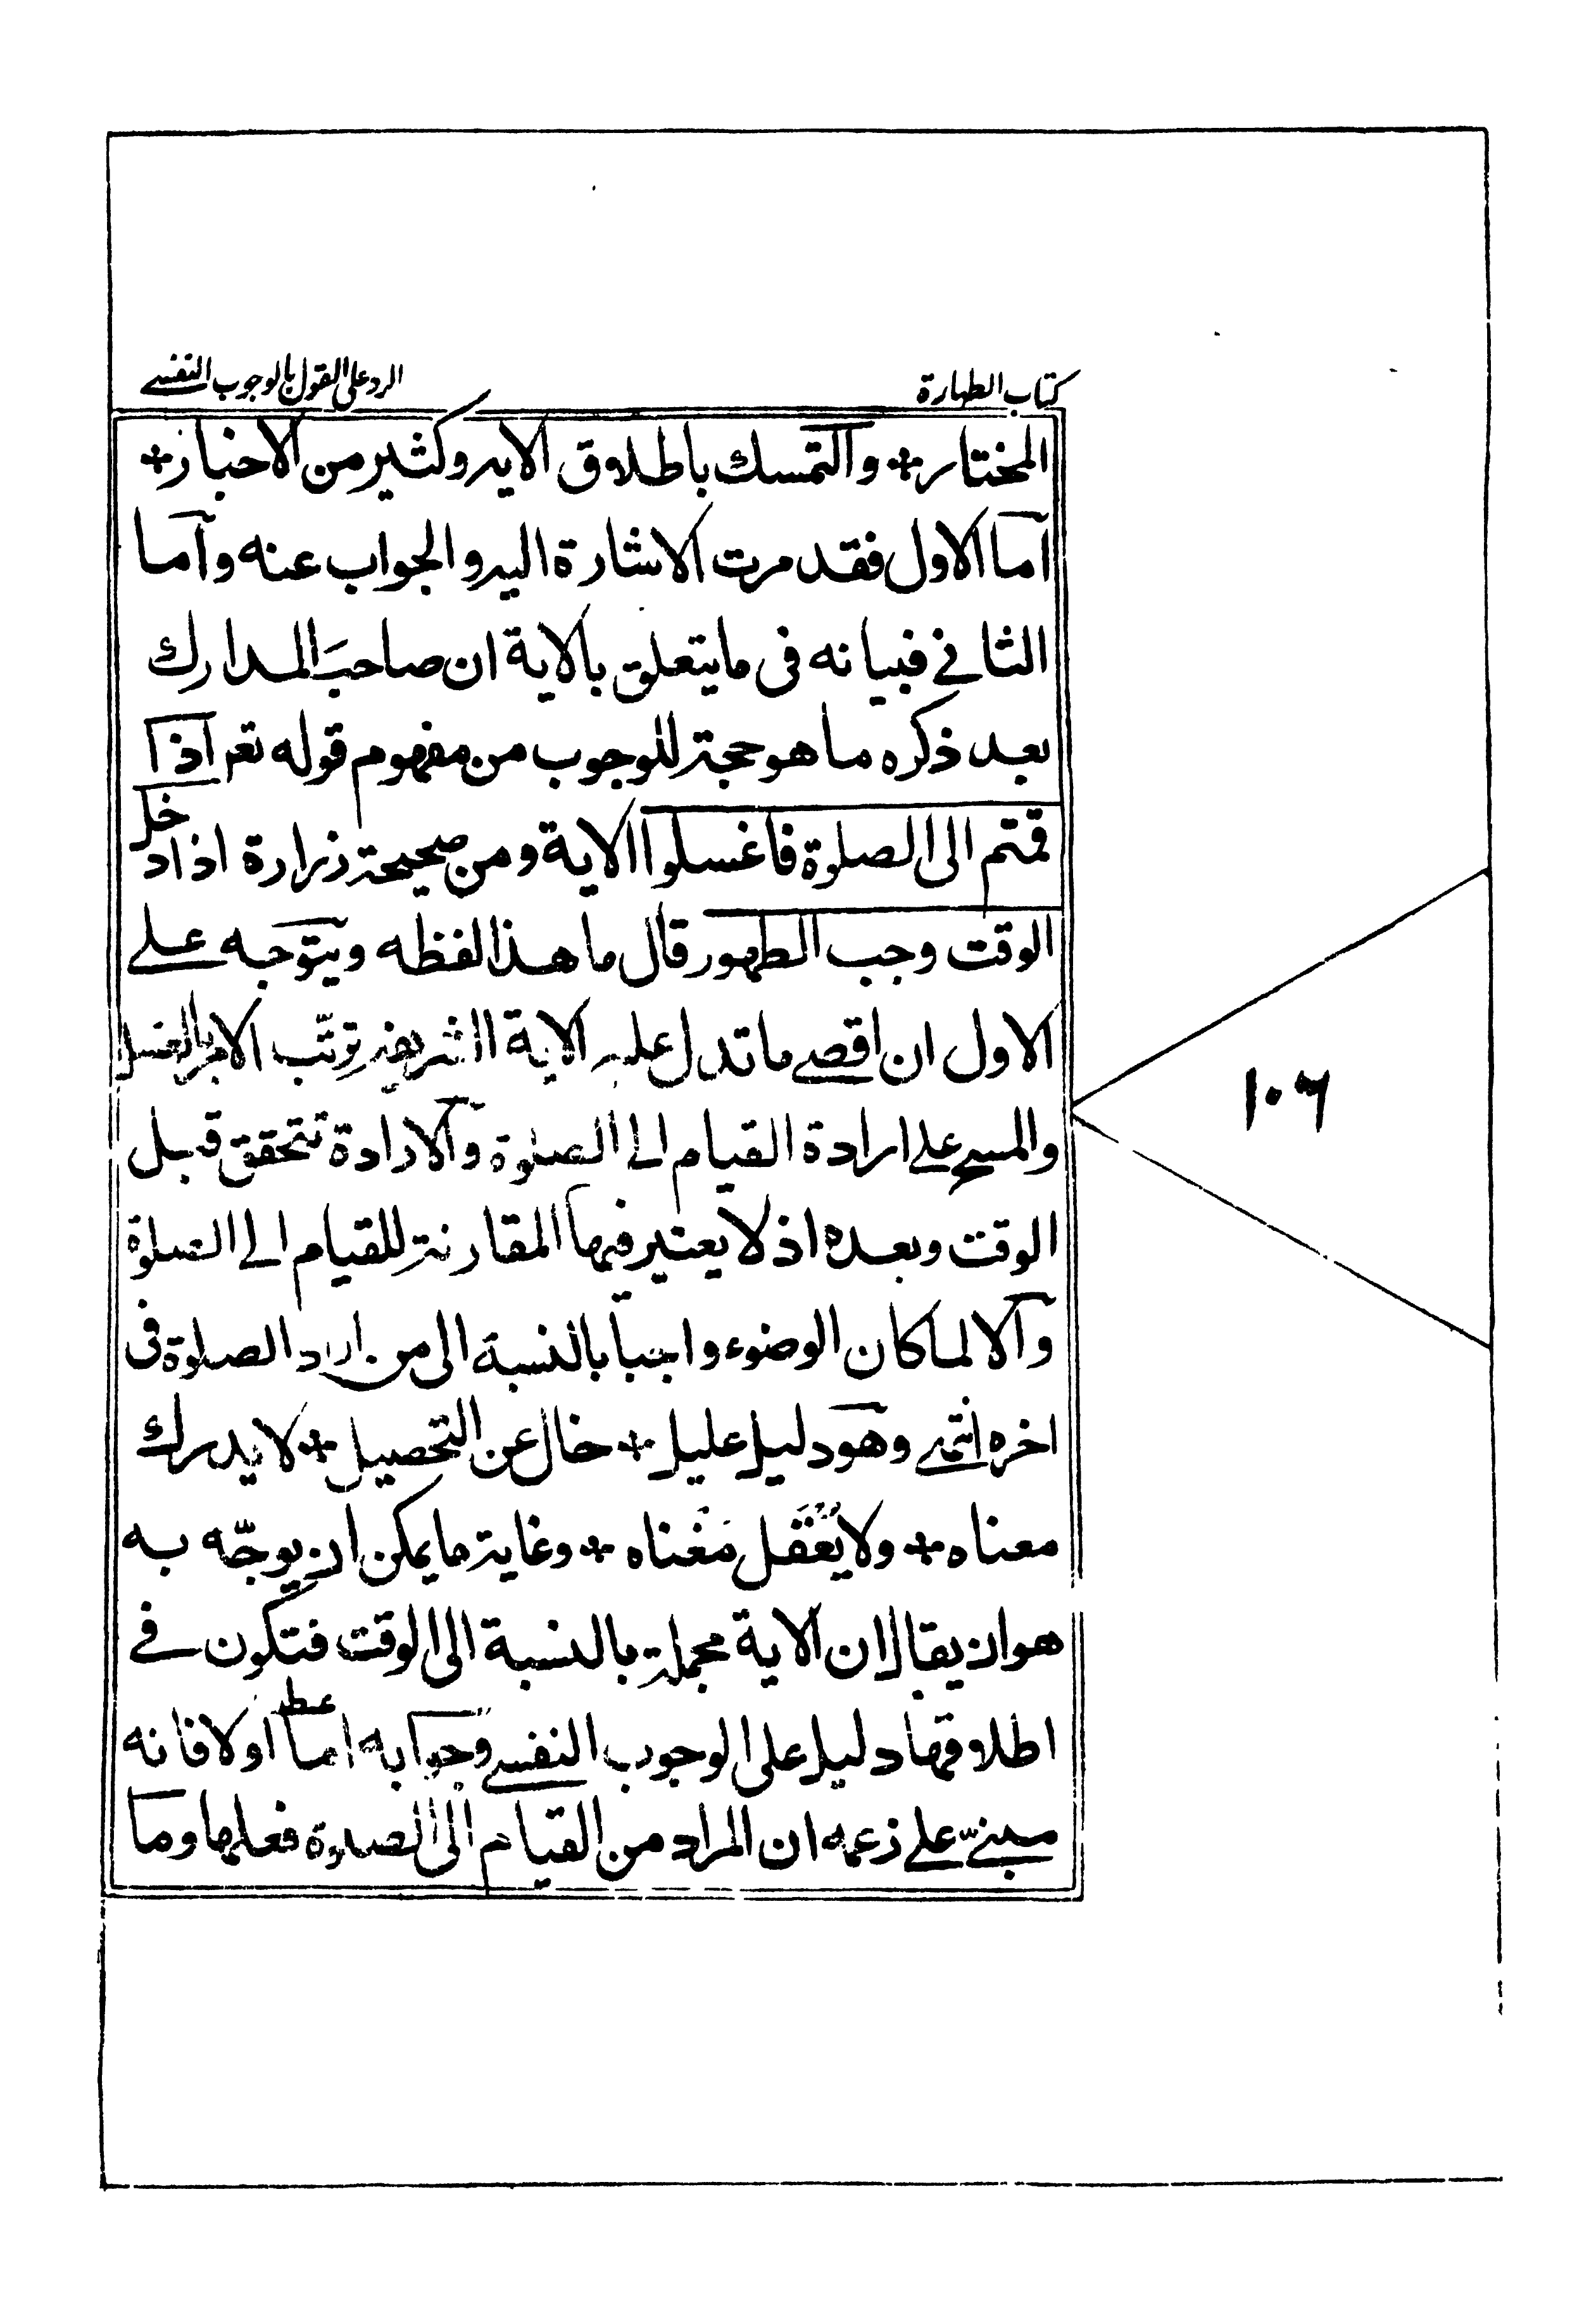 كتاب الطهارة
الرد على القول بالوجوب النفسے
المختار * والتمسك باطلاق الايه وكثير من الاخبار *
اما الاول فقد مرت الاشارة اليه والجواب عنه واما
الثانے فبيانه فى ما يتعلق بالاية ان صاحب المدارك
بعد ذكره ما هو حجة للوجوب من مفهوم قوله تعم اذا
قمتم الى الصلوة فاغسلوا الاية ومن صحيحة زرارة اذا دخل
الوقت وجب الطهور قال ما هذا لفظه ويتوجه علے
الاول ان اقصے ما تدل عليه الاية الشريفة ترتّب الامر بالغسل
والمسح علے ارادة القيام الے الصلوة والارادة تتحقق قبل
الوقت وبعده اذ لا يعتبر فيها المقارنة للقيام الے الصلوة
والا لما كان الوضوء واجباً بالنسبة الى من اراد الصلوة فى
اخره انتهى وهو دليل عليل * خال عن التحصيل * لا يدرك
معناه * ولا يُعْقَل مَغْناه * وغاية ما يمكن ان يوجّه به
هو ان يقال ان الاية مجملة بالنسبة الى الوقت فتكون فے
اطلاقها دليل على الوجوب النفسے وجوابه اما اولا فانه
مبنےّ علے زعمه ان المراد من القيام الى الصلوة فعلها وما
١٠٦